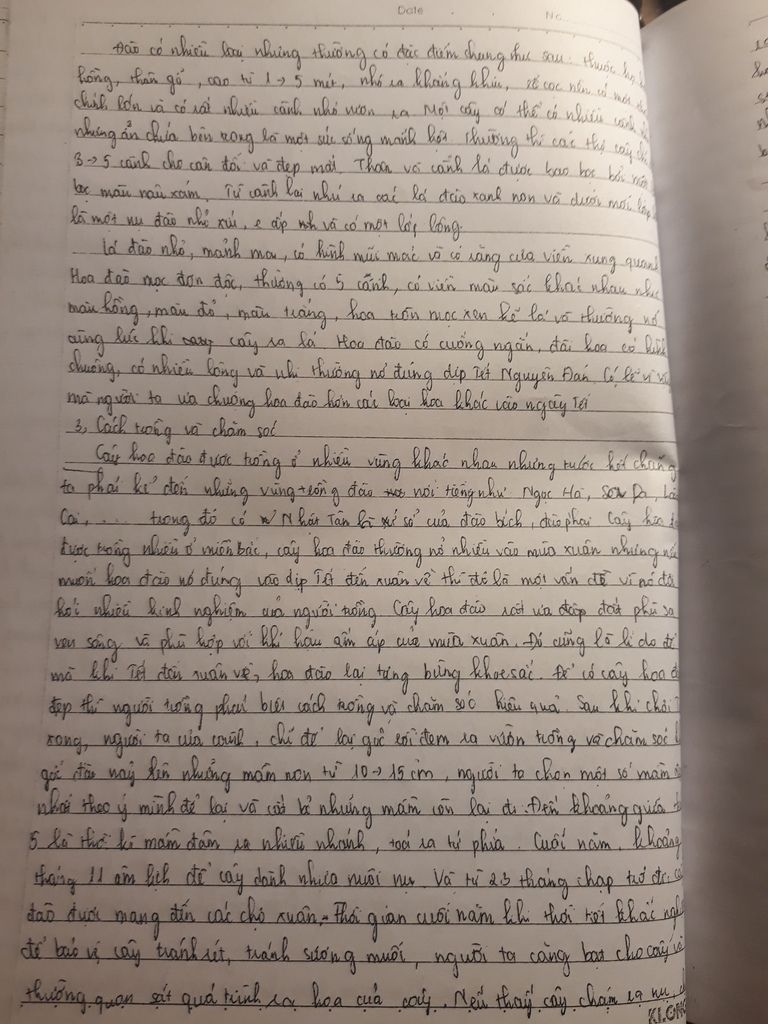 Date No.
Đào có nhiều loại nhưng thường có đặc điểm chung như sau: thuộc họ
hồng, thân gỗ, cao từ 1 → 5 mét, nhỏ và khẳng khiu, rễ cọc nên có một
chính lớn và có rất nhiều cành nhỏ vươn ra. Một cây có thể có nhiều cành
nhưng ẩn chứa bên trong là một sức sống mãnh liệt. Thường thì các thợ cây
3 → 5 cành cho cân đối và đẹp mắt. Thân và cành lá được bao bọc bởi một
lớp màu nâu xám. Từ cành lại nhú ra các lá đào xanh non và dưới mỗi lớp
là một nụ đào nhỏ xíu, e ấp và có một lớp lông.
Lá đào nhỏ, mảnh mai, có hình mũi mác và có răng cưa viền xung quanh
Hoa đào mọc đơn độc, thường có 5 cánh, có viền màu sắc khác nhau như
màu hồng, màu đỏ, màu trắng, hoa mọc xen kẽ lá và thường nở
cùng lúc khi cây ra lá. Hoa đào có cuống ngắn, đài hoa có hình
chuông, có nhiều lông và nhị thường nở đúng dịp Tết Nguyên Đán. Có lẽ vì vậy
mà người ta ưa chuộng hoa đào hơn các loại hoa khác vào ngày Tết
3, Cách trồng và chăm sóc
Cây hoa đào được trồng ở nhiều vùng khác nhau nhưng trước hết chúng
ta phải kể đến những vùng trồng đào nổi tiếng như Ngọc Hà, Sa Pa, Lào
Cai, ... trong đó có Nhật Tân là xứ sở của đào bích, đào phai. Cây hoa
được trồng nhiều ở miền bắc, cây hoa đào thường nở nhiều vào mùa xuân nhưng nếu
muốn hoa đào nở đúng vào dịp Tết đến xuân về thì đó là một vấn đề vì nó đòi
hỏi nhiều kinh nghiệm của người trồng. Cây hoa đào rất ưa đất phù sa
ven sông và phù hợp với khí hậu ấm áp của mùa xuân. Đó cũng là lí do để
mà khi Tết đến xuân về, hoa đào lại từng bừng khoe sắc. Để có cây hoa
đẹp thì người trồng phải biết cách trồng và chăm sóc hiệu quả. Sau khi chơi
xong, người ta cưa cành, chỉ để lại gốc rồi đem ra vườn trồng và chăm sóc
gốc đào nảy lên những mầm non từ 10 → 15 cm, người ta chọn một số mầm
nhất theo ý mình để lại và cắt bỏ những mầm còn lại đi. Đến khoảng giữa
5 là thời kì mầm đâm ra nhiều nhánh, toả ra tứ phía. Cuối năm, khoảng
tháng 11 âm lịch để cây dành nhựa nuôi nụ. Và từ 23 tháng chạp trở đi,
đào được mang đến các chợ xuân. Thời gian cuối năm khi thời tiết khắc
để bảo vệ cây tránh rét, tránh sương muối, người ta căng bạt cho cây và
thường quan sát quá trình ra hoa của cây. Nếu thấy cây chậm ra nụ,
KLONG